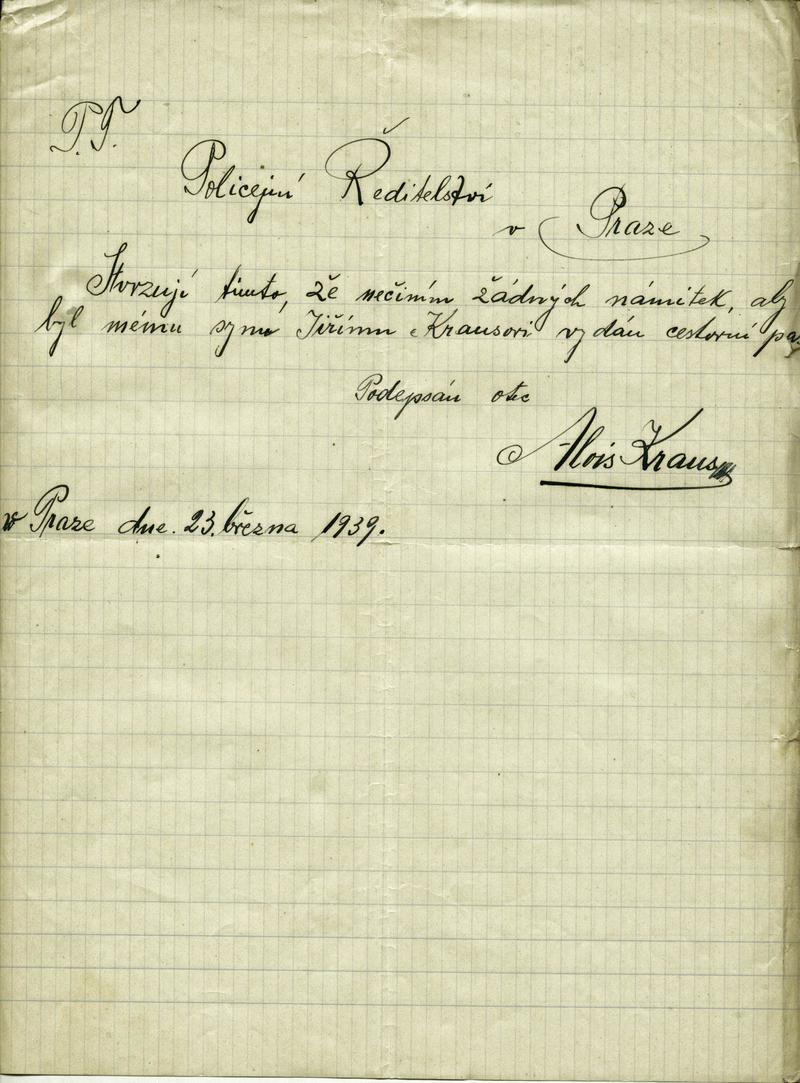 P.T.
Policejní Ředitelství
v Praze
Stvrzuji tímto, že nečiním žádných námitek, aby
byl mému synu Jiřímu Krausovi vydán cestovní pas
Podepsán otec
Alois Kraus
v Praze dne 23. března 1939.